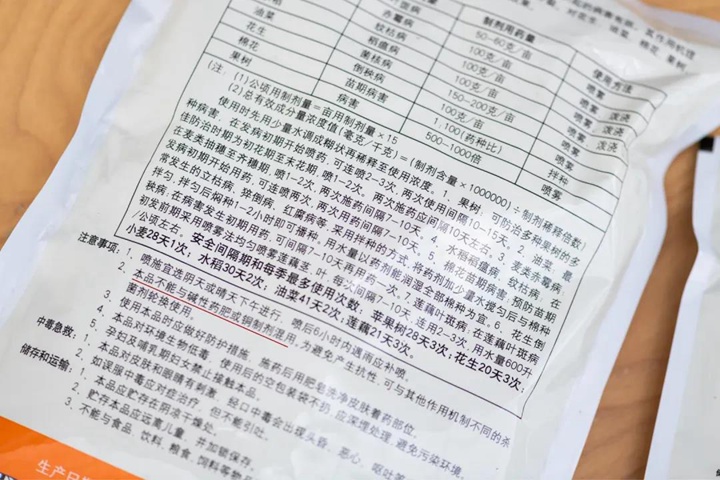 制剂用药量
使用方法
油菜
花生
棉花
果树
赤霉病
纹枯病
稻瘟病
菌核病
倒秧病
苗期病害
病害
50~60克/亩
100克/亩
100克/亩
100克/亩
150~200克/亩
100克/亩
1:100(药种比)
500~1000倍
喷雾
喷雾
喷雾 泼浇
喷雾 泼浇
喷雾
拌种
喷雾
(注:(1)公顷用制剂量=亩用制剂量×15
(2)总有效成分量浓度值(毫克/千克)=(制剂含量×1000000)÷制剂稀释倍数)
使用时先用少量水调成糊状再稀释至使用浓度。1、果树:可防治多种果树的多
种病害。在发病初期开始喷药,可连喷2~3次,两次使用间隔10~15天。2、油菜:最
佳防治时期为初花期至末花期,喷1~2次,两次施药应间隔10天左右。3、麦类赤霉病:
在麦类抽穗至齐穗期,喷1~2次,两次施药间隔7~10天。4、水稻稻瘟病、纹枯病:在
发病初期开始用药,可连喷两次,两次用药间隔7~10天。5、棉花苗期病害:预防苗期
常发生的立枯病、猝倒病、红腐病等,采用拌种的方式,将药剂加少量水搅匀后与棉种
拌匀,拌匀后闷种1~2小时即可播种,用水量以药剂能润湿全部棉种为宜。6、花生倒
秧病:在病害发生初期用药,可间隔7~10天再用药一次。7、莲藕叶斑病:在莲藕叶斑病
初发前期采用喷雾法均匀喷雾莲藕茎、叶,每次间隔7~10天,连用2~3次,用水量600升
/公顷左右。安全间隔期和每季最多使用次数:苹果树28天3次;花生20天3次;
小麦28天1次;水稻30天2次;油菜41天2次;莲藕21天3次。
注意事项:1、喷施宜选阴天或晴天下午进行,喷后6小时内遇雨应补喷。
2、本品不能与碱性药肥或铜制剂混用,为避免产生抗性,可与其他作用机制不同的杀
菌剂轮换使用。
3、使用本品时应做好防护措施,施药后用肥皂洗净皮肤着药部位。
4、本品对环境生物低毒,使用后的空包装袋不扔,应深埋处理,避免污染环境。
5、孕妇及哺乳期妇女禁止接触本品。
中毒急救:1、本品对皮肤和眼睛有刺激,经口中毒会出现头昏、恶心、呕吐等
2、如误服中毒应对症治疗,但不能引吐。
储存和运输:1、本品应贮存在阴凉干燥处。
2、贮存本品应远离儿童,并加锁保存。
3、不能与食品、饮料、粮食、饲料等物品
生产日期